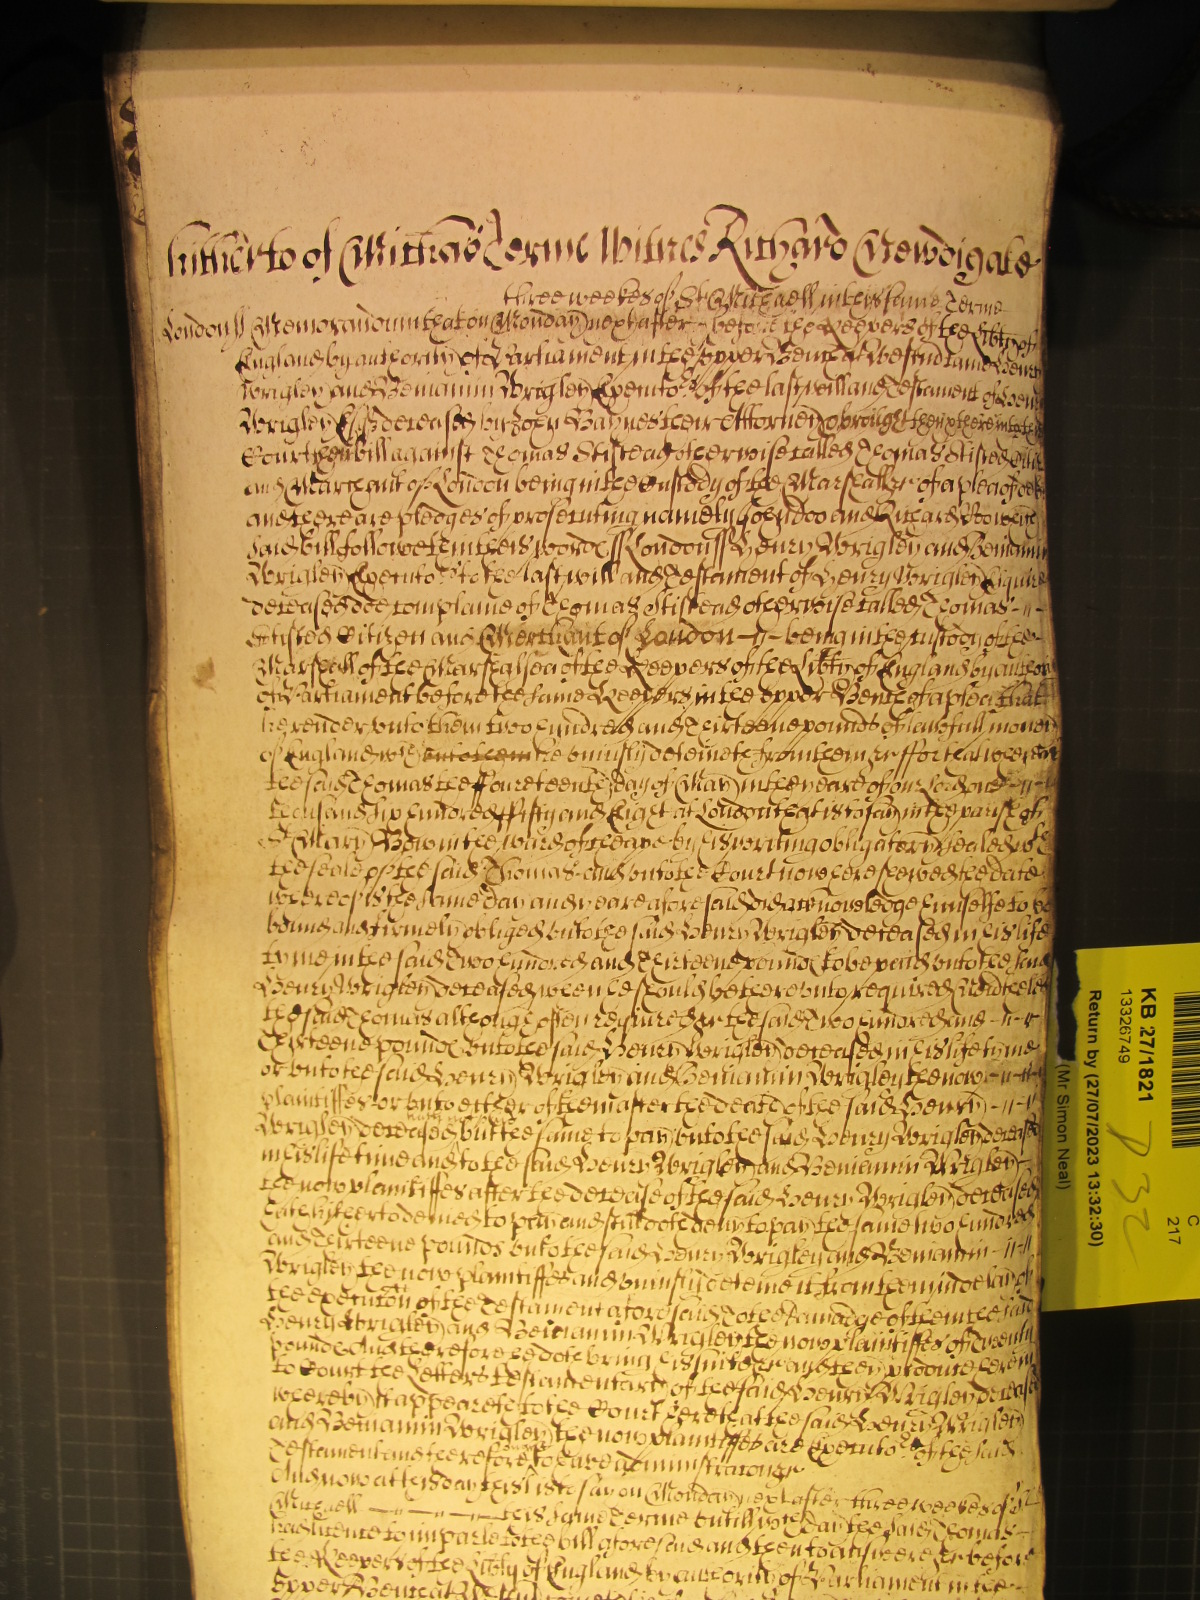 hitherto of Michas Terme Witnes Richard Newdigate
three weekes of St Michaell in this same Terme
London ss Memorandum that on Monday next after before the Keepers of the Libty of
England by authority of Parliament in the Upper Bench at Westm came Henry
Wrigley and Beniamin Wrigley Executors of the last will and Testament of Henry
Wrigley deceased by John Baynes their Attorney brought then there into the
Court their bill against Thomas Stistead otherwise called Thomas Stisted Citizen
and Marchant of London being in the Custody of the Marshall of a plea of debt
and there are pledges of prosecuting namely John Doo and Richard Roo which
said bill followeth in theis words ss London ss Henry Wrigley and Beniamin
Wrigley Executors to the last will and Testament of Henry Wrigley Esquire
deceased doe complaine of Thomas Stistead otherwise called Thomas
Stisted Citizen and Merchant of London being in the custody of the
Marshall of the Marshalsea of the Keepers of the Libty of England by author
of Parliament before the same Keepers in the Upper Bench of a plea that
he render unto them two hundred and Thirteene pounds of lawfull money
of England wch he uniustly deteineth from them for that whereas
the said Thomas the ffoureteenth day of May in the yeare of our Lord one
thousand six hundred ffifty and Eight at London that is to say in the parish of
St Mary Bow in the ward of Cheape by his writing obligatory sealed wth
the seale of the said Thomas and unto the Court now here shewed the date
whereof is the same day and yeare aforesaid did acknowledge himselfe to be
bound and firmely obliged unto the said Henry Wrigley deceased in his life
tyme in the said Two hundred and Thirteene pounds to be paid unto the said
Henry Wrigley deceased when he should be thereunto required Neverthelesse
the said Thomas although often required the said Two hundred and
Thirteene pounds unto the said Henry Wrigley deceased in his life tyme
or unto the said Henry Wrigley and Beniamin Wrigley the now
plaintiffes or unto either of them after the death of the said Henry
Wrigley deceased but the same to pay unto the said Henry Wrigley deceased
in his life time and to the said Henry Wrigley and Beniamin Wrigley
the now plaintiffes after the decease of the said Henry Wrigley deceased
hath hitherto denied to pay and still doth deny to pay the same two hundred
and Thirteene pounds unto the said Henry Wrigley and Beniamin
Wrigley the now plaintiffes and uniustly deteineth from them in delay of
the execution of the Testament aforesaid To the damadge of them the said
Henry Wrigley and Beniamin Wrigley the now plaintiffes of Twenty
pounds And therefore they doe bring suite and they produce here in
to Court the Letters Testamentary of the said Henry Wrigley deceased
whereby it appeareth to the Court here that the said Henry Wrigley
and Beniamin Wrigley the now plaintiffes are Executors of the said
Testament and therefore to have administracon
And now at this day that is to say on Monday next after three weekes of St
Michaell this same Terme untill wch day the said Thomas
had licence to imparle to the bill aforesaid and then to answere before
the Keepers of the Libty of England by authority of Parliament in the
Upper Bench at Westm
KB 27/1821
13326749
Return by (27/07/2023 13:32:30)
(Mr Simon Neal)
C
217